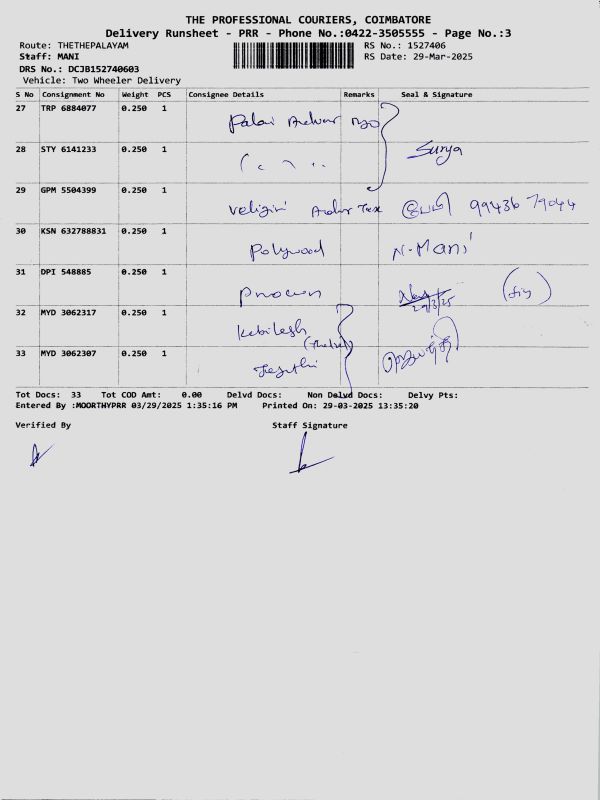 THE PROFESSIONAL COURIERS, COIMBATORE
Delivery Runsheet - PRR - Phone No.:0422-3505555 - Page No.:3
Route: THETHEPALAYAM RS No.: 1527406
Staff: MANI RS Date: 29-Mar-2025
DRS No.: DCJB152740603
Vehicle: Two Wheeler Delivery
S No Consignment No Weight PCS Consignee Details Remarks Seal & Signature
27 TRP 6884077 0.250 1
28 STY 6141233 0.250 1 Surya
29 GPM 5504399 0.250 1 Tex 99436 79044
30 KSN 632788831 0.250 1 Polywood N-Mani
31 DPI 548885 0.250 1 29/3/25
32 MYD 3062317 0.250 1 Kabilesh
33 MYD 3062307 0.250 1
Tot Docs: 33 Tot COD Amt: 0.00 Delvd Docs: Non Delvd Docs: Delvy Pts:
Entered By :MOORTHYPRR 03/29/2025 1:35:16 PM Printed On: 29-03-2025 13:35:20
Verified By Staff Signature